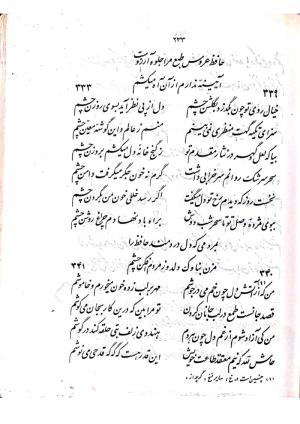 ۲۳۳
حافظ عروس طبع مرا جلوه آرزوست
آیینه ندارم از آن آه میکشم
۳۳۳ ۳۳۹
خیال روی تو چون بگذرد بگلشن چشم دل از پی نظر آید بسوی روزن چشم
سزای تکیه گهت منظری نمی بینم منم ز عالم و این گوشه معین چشم
بیا که لعل و گهر در نثار مقدم تو ز گنج خانه دل میکشم بروزن چشم
سحر سرشک روانم سر خرابی داشت گرم نه خون جگر میگرفت دامن چشم
نخست روز که دیدم رخ تو دل میگفت اگر رسد خللی خون من بگردن چشم
ببوی مژده وصل تو تا سحر شب دوش براه باد نهادم چراغ روشن چشم
بمردمی که دل دردمند حافظ را
مزن بناوک دلدوز مردم افکن چشم
۳۴۱ ۳۴۰
من که از آتش دل چون خم می در جوشم مهر بر لب زده خون میخورم و خاموشم
قصد جانست طمع در لب جانان کردن تو مرا بین که درین کار بجان میکوشم
من کی آزاد شوم از غم دل چون هر دم هندوی زلف بتی حلقه کند در گوشم
حاش لله که نیم معتقد طاعت خویش این قدر هست که گه گه قدحی می نوشم